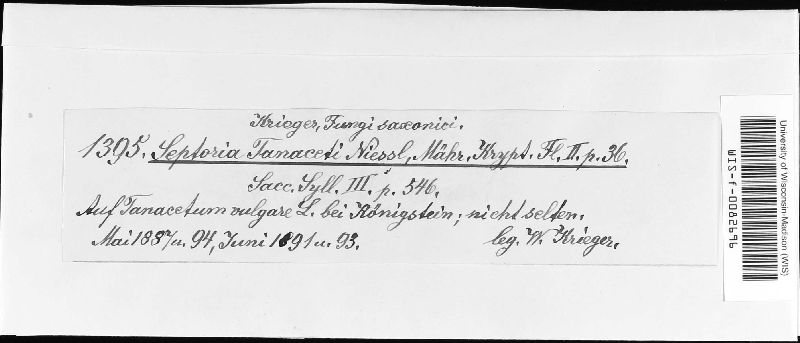 Krieger, Fungi saxonici.
1395. Septoria Tanaceti Niessl, Mähr. Krypt. Fl. II. p. 36.
Sacc. Syll. III. p. 546.
Auf Tanacetum vulgare L. bei Königstein; nicht selten.
Mai 1887 u. 94, Juni 1891 u. 93. leg. W. Krieger.
University of Wisconsin-Madison (WIS)
WIS-f-0082696